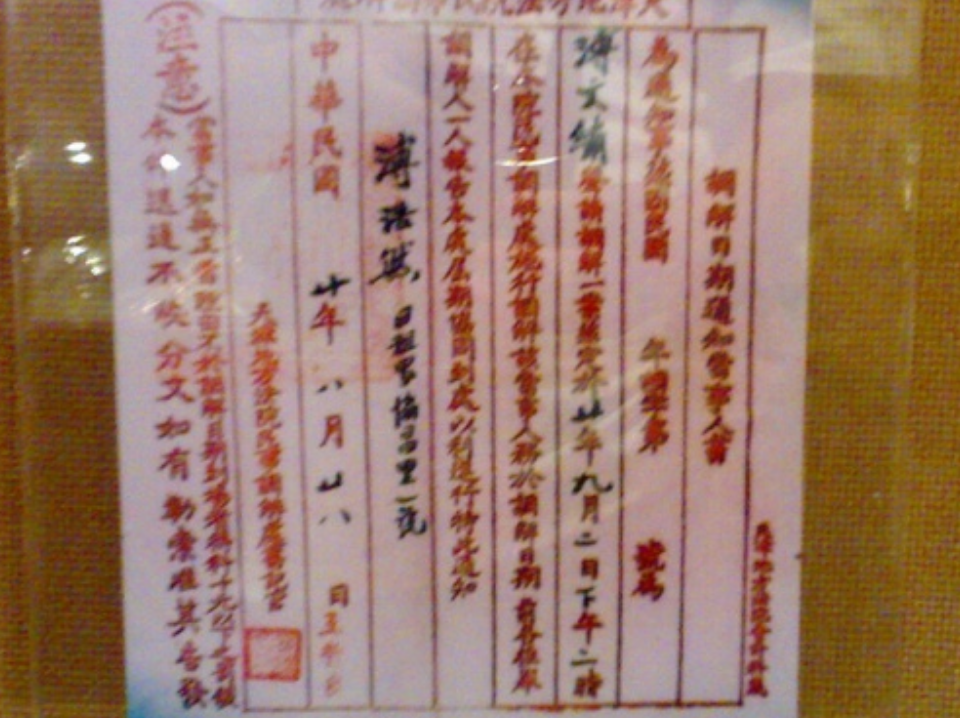 天津地方法院民事調解處
調解日期通知當事人書
為通知事 民調 年調字第 號為
溥文繡聲請調解一案茲定於廿年九月二日下午二時
在本院民事調解處施行調解該當事人務於調解日期前各推舉
調解人一人報告本處屆期協同到處以利進行特此通知
溥浩然 日租界協昌里一號
中華民國 廿年 八月 廿八 日
天津地方法院民事調解處書記官
(注意)
當事人如無正當理由不於調解日期到場者得科十元以下之罰鍰
本件送達不收分文如有勒索准其告發